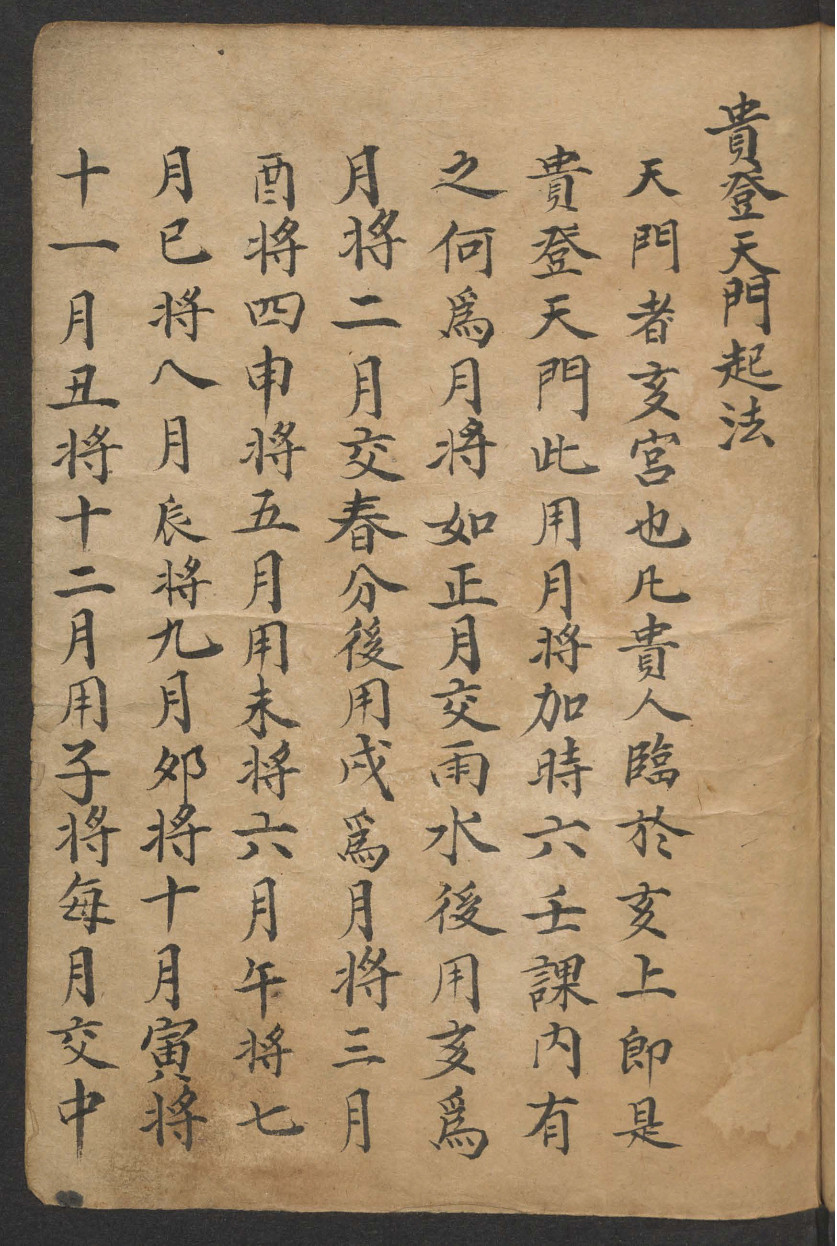 貴登天門起法
天門者亥宮也凡貴人臨於亥上即是
貴登天門此用月将加時六壬課内有
之何爲月将如正月交雨水後用亥爲
月将二月交春分後用戌爲月将三月
酉将四申将五月用未将六月午将七
月巳将八月辰将九月卯将十月寅将
十一月丑将十二月用子将每月交中